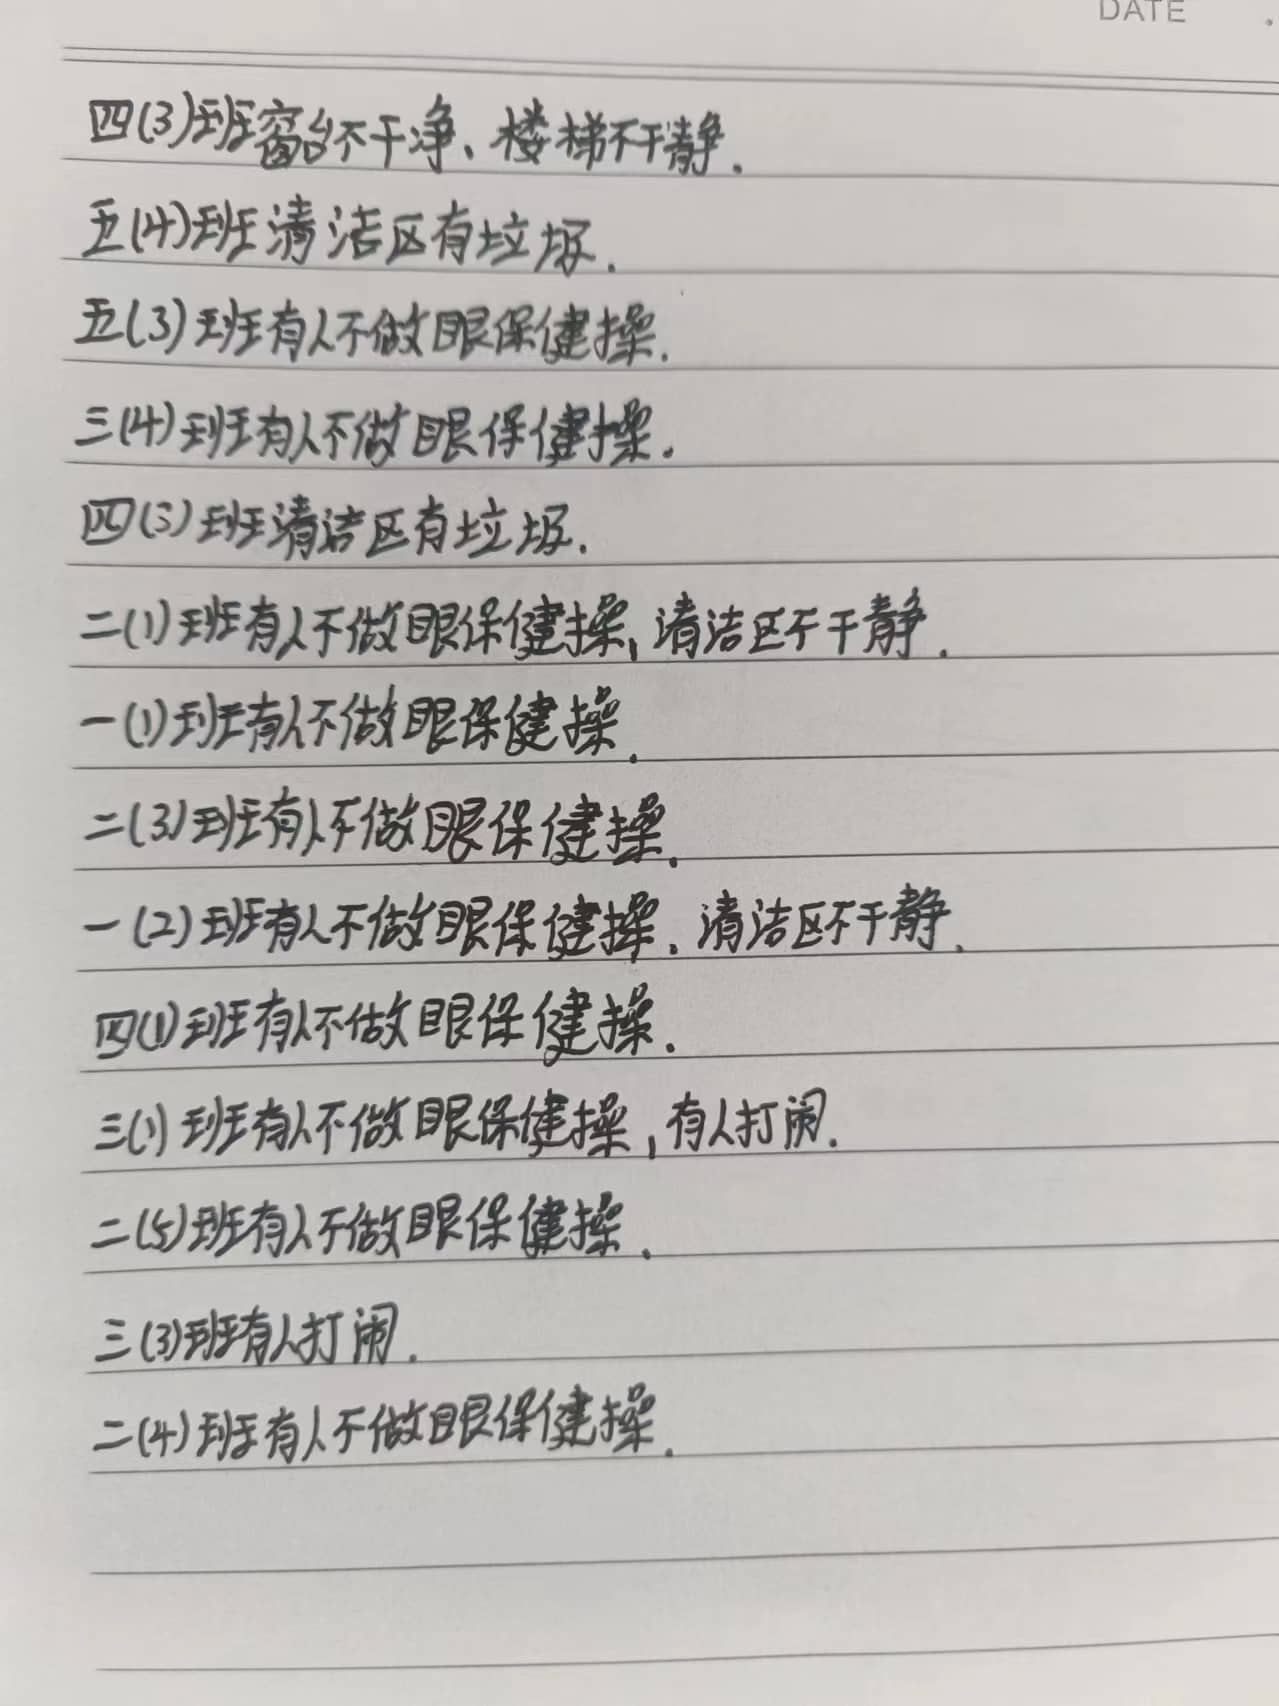 DATE
四(3)班窗台不干净、楼梯不干静.
五(4)班清洁区有垃圾.
五(3)班有人不做眼保健操.
三(4)班有人不做眼保健操.
四(3)班清洁区有垃圾.
二(1)班有人不做眼保健操,清洁区不干静.
一(1)班有人不做眼保健操.
二(3)班有人不做眼保健操.
一(2)班有人不做眼保健操.清洁区不干静.
四(1)班有人不做眼保健操.
三(1)班有人不做眼保健操,有人打闹.
二(5)班有人不做眼保健操.
三(3)班有人打闹.
二(4)班有人不做眼保健操.